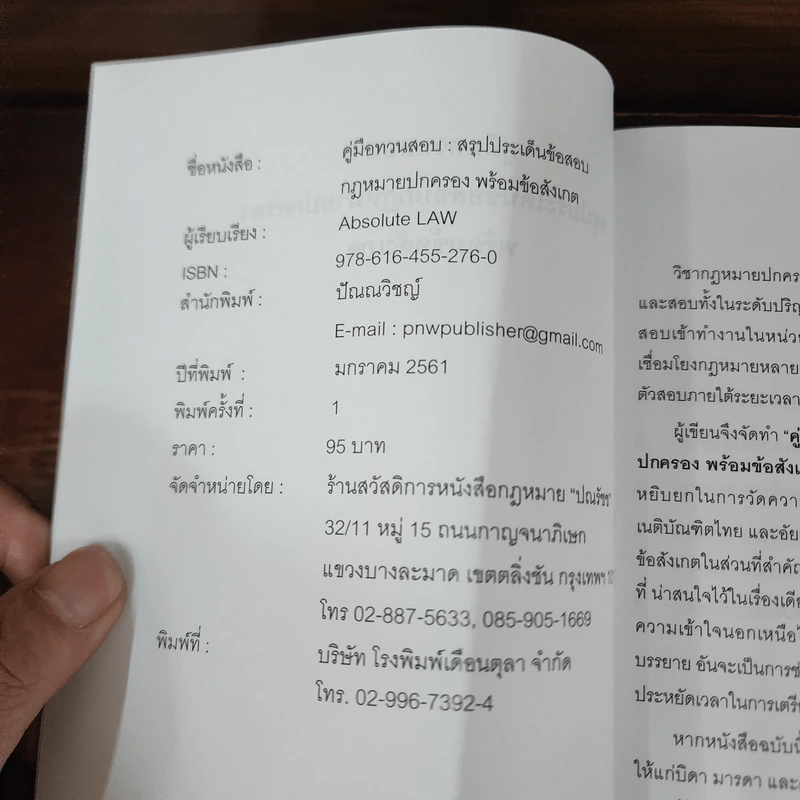 ชื่อหนังสือ : คู่มือทวนสอบ : สรุปประเด็นข้อสอบ
กฎหมายปกครอง พร้อมข้อสังเกต
ผู้เรียบเรียง : Absolute LAW
ISBN : 978-616-455-276-0
สำนักพิมพ์ : ปัณณวิชญ์
E-mail : pnwpublisher@gmail.com
ปีที่พิมพ์ : มกราคม 2561
พิมพ์ครั้งที่ : 1
ราคา : 95 บาท
จัดจำหน่ายโดย : ร้านสวัสดิการหนังสือกฎหมาย "ปณรัชช"
32/11 หมู่ 15 ถนนกาญจนาภิเษก
แขวงบางละมาด เขตตลิ่งชัน กรุงเทพฯ
โทร 02-887-5633, 085-905-1669
พิมพ์ที่ : บริษัท โรงพิมพ์เดือนตุลา จำกัด
โทร. 02-996-7392-4
วิชากฎหมายปกคร
และสอบทั้งในระดับปริญ
สอบเข้าทำงานในหน่วย
เชื่อมโยงกฎหมายหลาย
ตัวสอบภายใต้ระยะเวลา
ผู้เขียนจึงจัดทำ "คู่
ปกครอง พร้อมข้อสังเ
หยิบยกในการวัดควา
เนติบัณฑิตไทย และอัย
ข้อสังเกตในส่วนที่สำคัญ
ที่ น่าสนใจไว้ในเรื่องเดีย
ความเข้าใจนอกเหนือไ
บรรยาย อันจะเป็นการช
ประหยัดเวลาในการเตรี
หากหนังสือฉบับนี้
ให้แก่บิดา มารดา และ